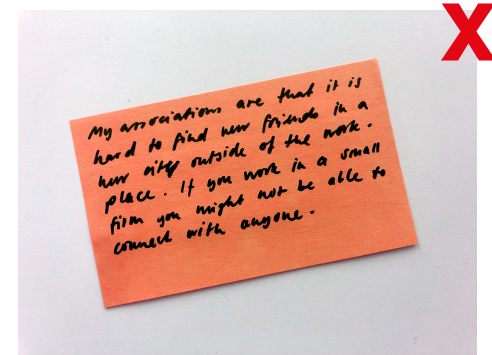 My associations are that it is
hard to find new friends in a
new city outside of the work.
place. If you work in a small
firm you might not be able to
connect with anyone.
X